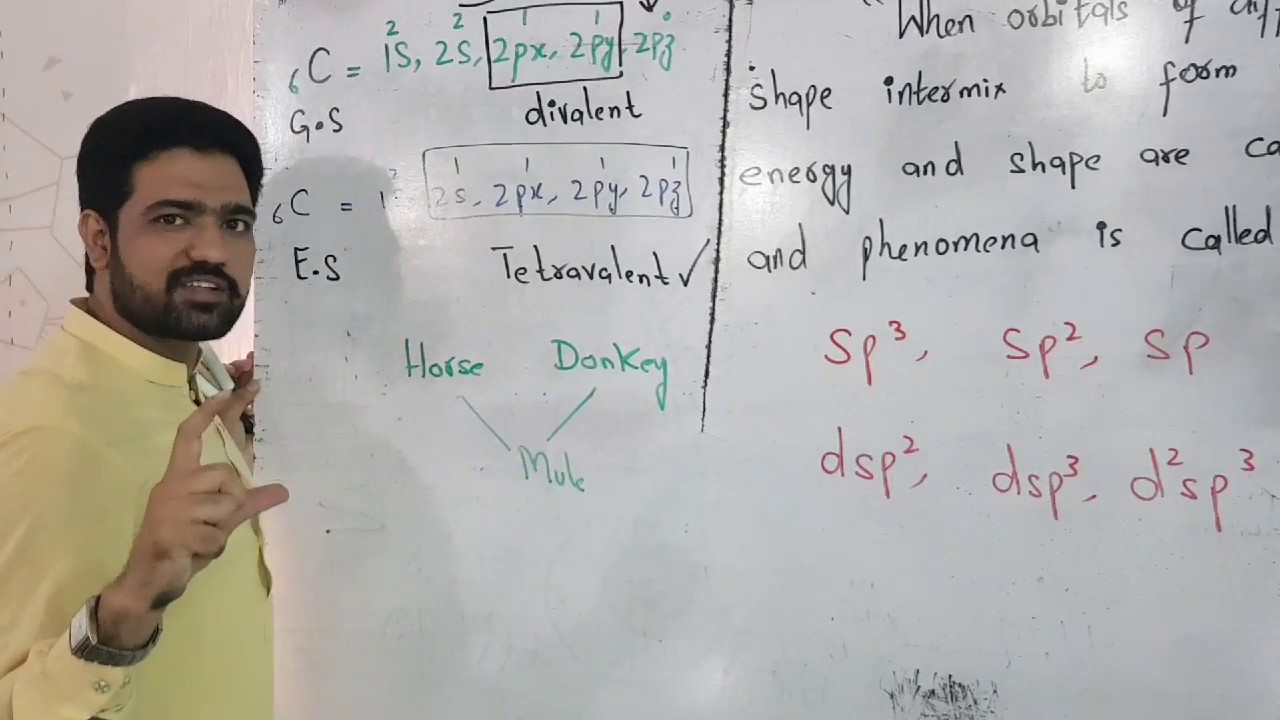 ₆C = 1S², 2S², 2px¹, 2py¹, 2pz⁰
G.S
divalent
₆C = 1 ² 2s¹, 2px¹, 2py¹, 2pz¹
E.S
Tetravalent ✓
Horse Donkey
Mule
When orbitals of
shape intermix to form
energy and shape are
and phenomena is called
Sp³, Sp², Sp
dsp², dsp³, d²sp³